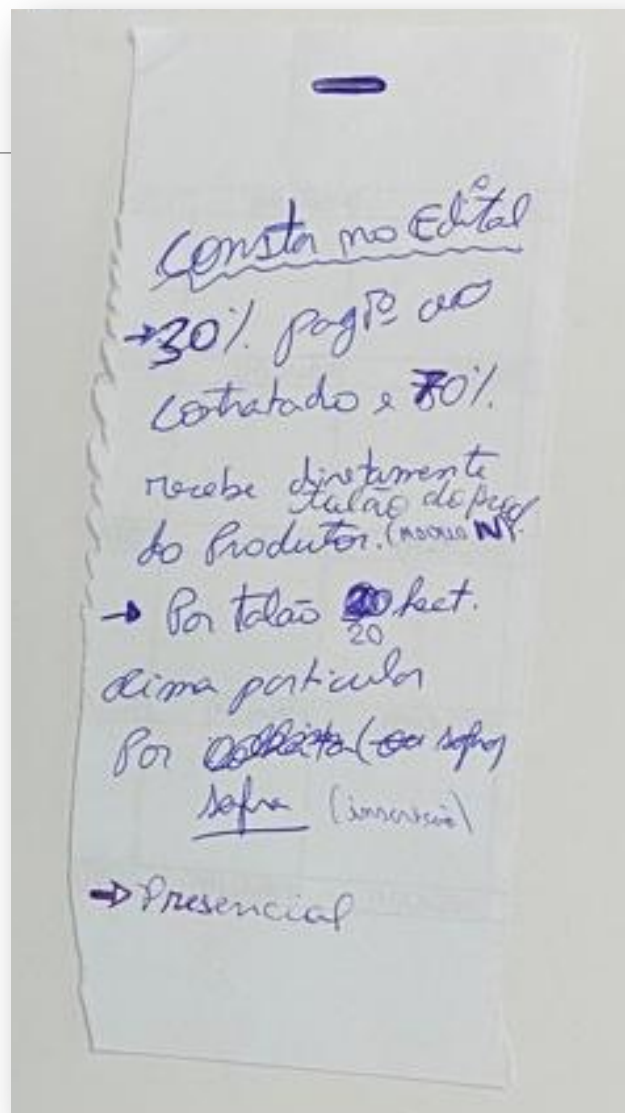 Consta no Edital
→30% pagto ao
contratado e 70%
recebe diretamente
talão do prod
do Produtor. (
→ Por talão 20 hect.
20
acima particular
Por (ou safra)
safra (inscrição)
⇒ Presencial